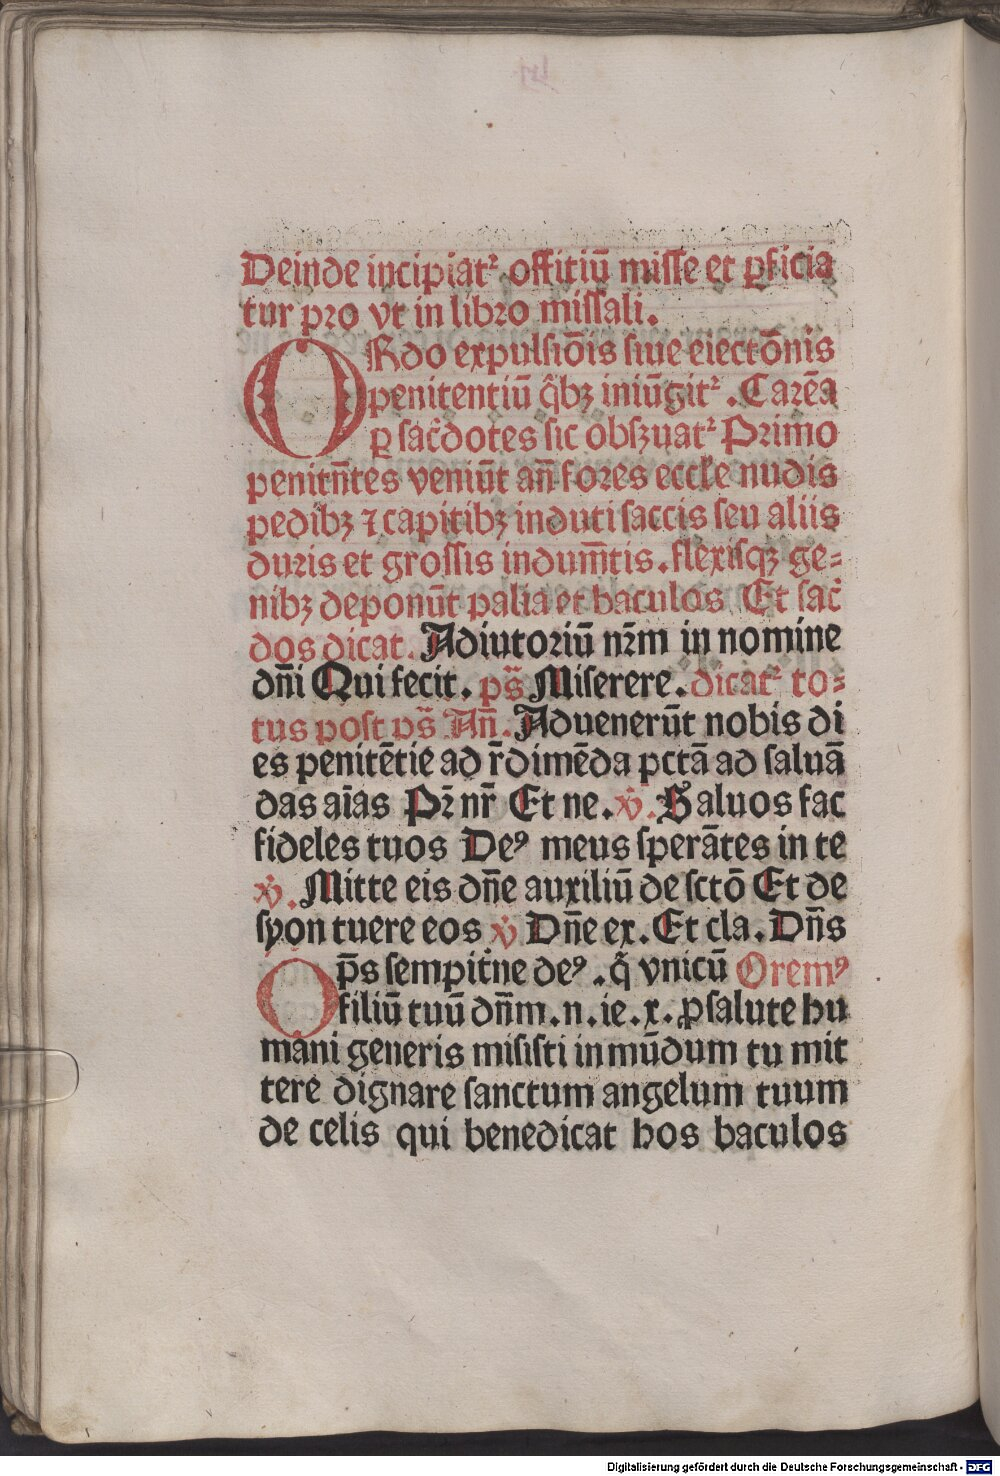 Deinde incipiatꝛ offitiū misse et ꝑficia
tur pro vt in libro missali.
ORdo expulsiōis siue eiectōnis
penitentiū q̄bꝫ iniūgitꝛ. Carēa
ꝑ sac̄dotes sic obsꝫuatꝛ Primo
penitn̄tes veniūt an̄ fores eccłe nudis
pedibꝫ ⁊ capitibꝫ induti saccis seu aliis
duris et grossis indum̄tis. flexisqꝫ ge⸗
nibꝫ deponūt palia et baculos Et sac̄
dos dicat. Adiutoriū nr̄m in nomine
dn̄i Qui fecit. ps̄ Miserere. dicatꝛ to⸗
tus post ps̄ An̄. Aduenerūt nobis di
es penitētie ad r̄dimēda pctā ad saluā
das aīas Pr̄ nr̄ Et ne. ℣. Saluos fac
fideles tuos Deꝰ meus sperātes in te
℣. Mitte eis dn̄e auxiliū de sctō Et de
syon tuere eos ℣ Dn̄e ex. Et cla. Dn̄s
Op̄s sempit̄ne deꝰ. q̄ vnicū Oremꝰ
filiū tuū dn̄m. n. ie. x. ꝓ salute hu
mani generis misisti in mūdum tu mit
tere dignare sanctum angelum tuum
de celis qui benedicat hos baculos
Digitalisierung gefördert durch die Deutsche Forschungsgemeinschaft - DFG